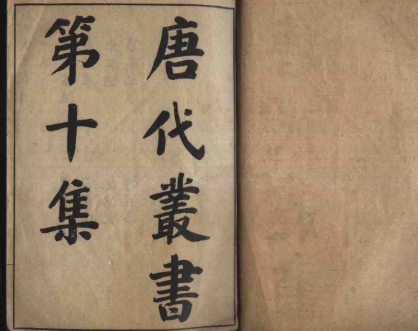 唐代叢書
第十集